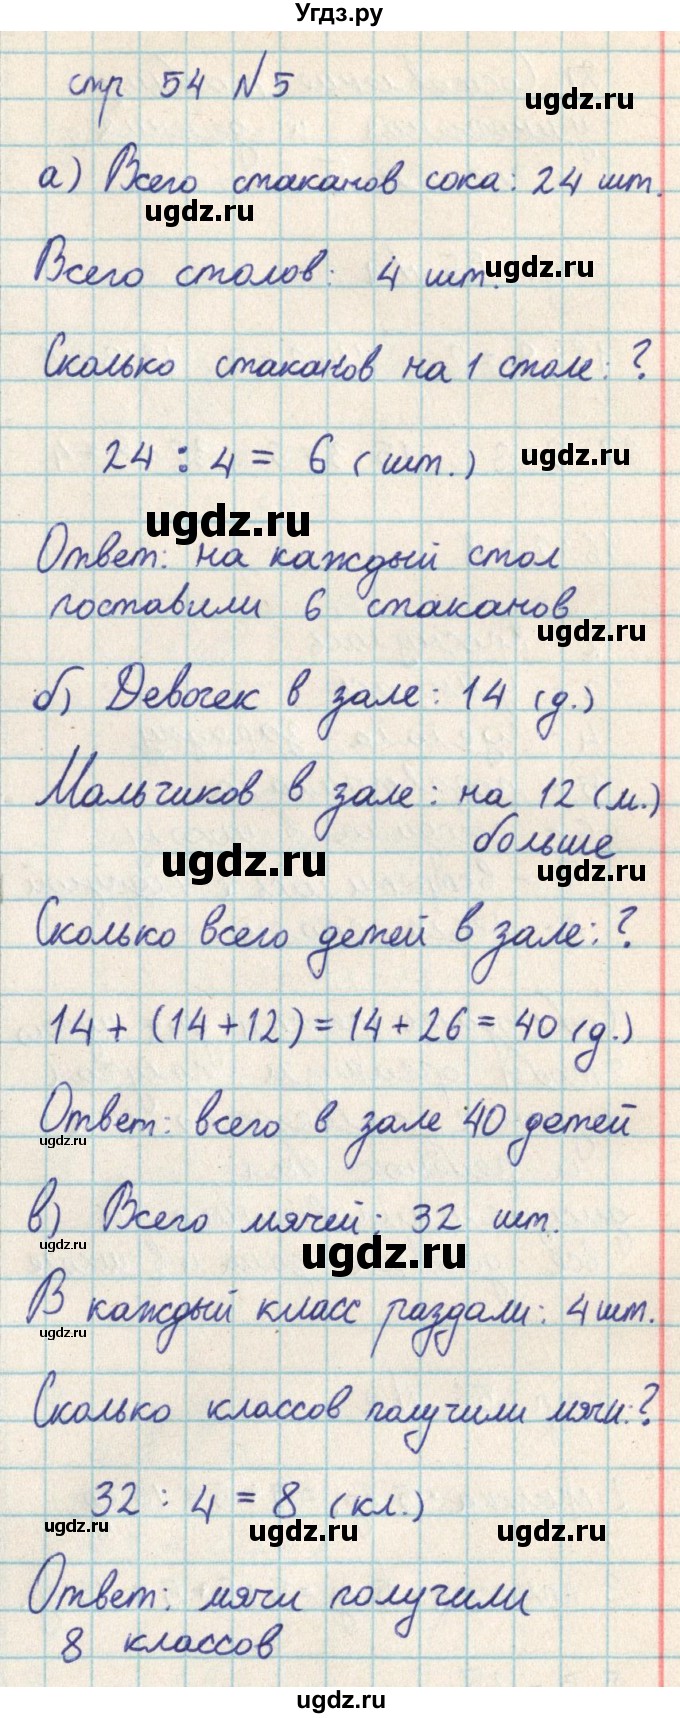 Угдз.ру
стр 54 №5
ugdz.ru
а) Всего стаканов сока: 24 шт.
ugdz.ru
Всего столов: 4 шт.
ugdz.ru
Сколько стаканов на 1 столе: ?
24 : 4 = 6 (шт.)
ugdz.ru
ugdz.ru
Ответ: на каждый стол
поставили 6 стаканов
ugdz.ru
б) Девочек в зале: 14 (д.)
Мальчиков в зале: на 12 (м.)
больше
ugdz.ru
ugdz.ru
Сколько всего детей в зале: ?
14 + (14+12) = 14 + 26 = 40 (д.)
Ответ: всего в зале 40 детей
ugdz.ru
в) Всего мячей: 32 шт.
ugdz.ru
ugdz.ru
В каждый класс раздали: 4 шт.
ugdz.ru
Сколько классов получили мячи: ?
32 : 4 = 8 (кл.)
ugdz.ru
ugdz.ru
ugdz.ru
Ответ: мячи получили
8 классов
ugdz.ru